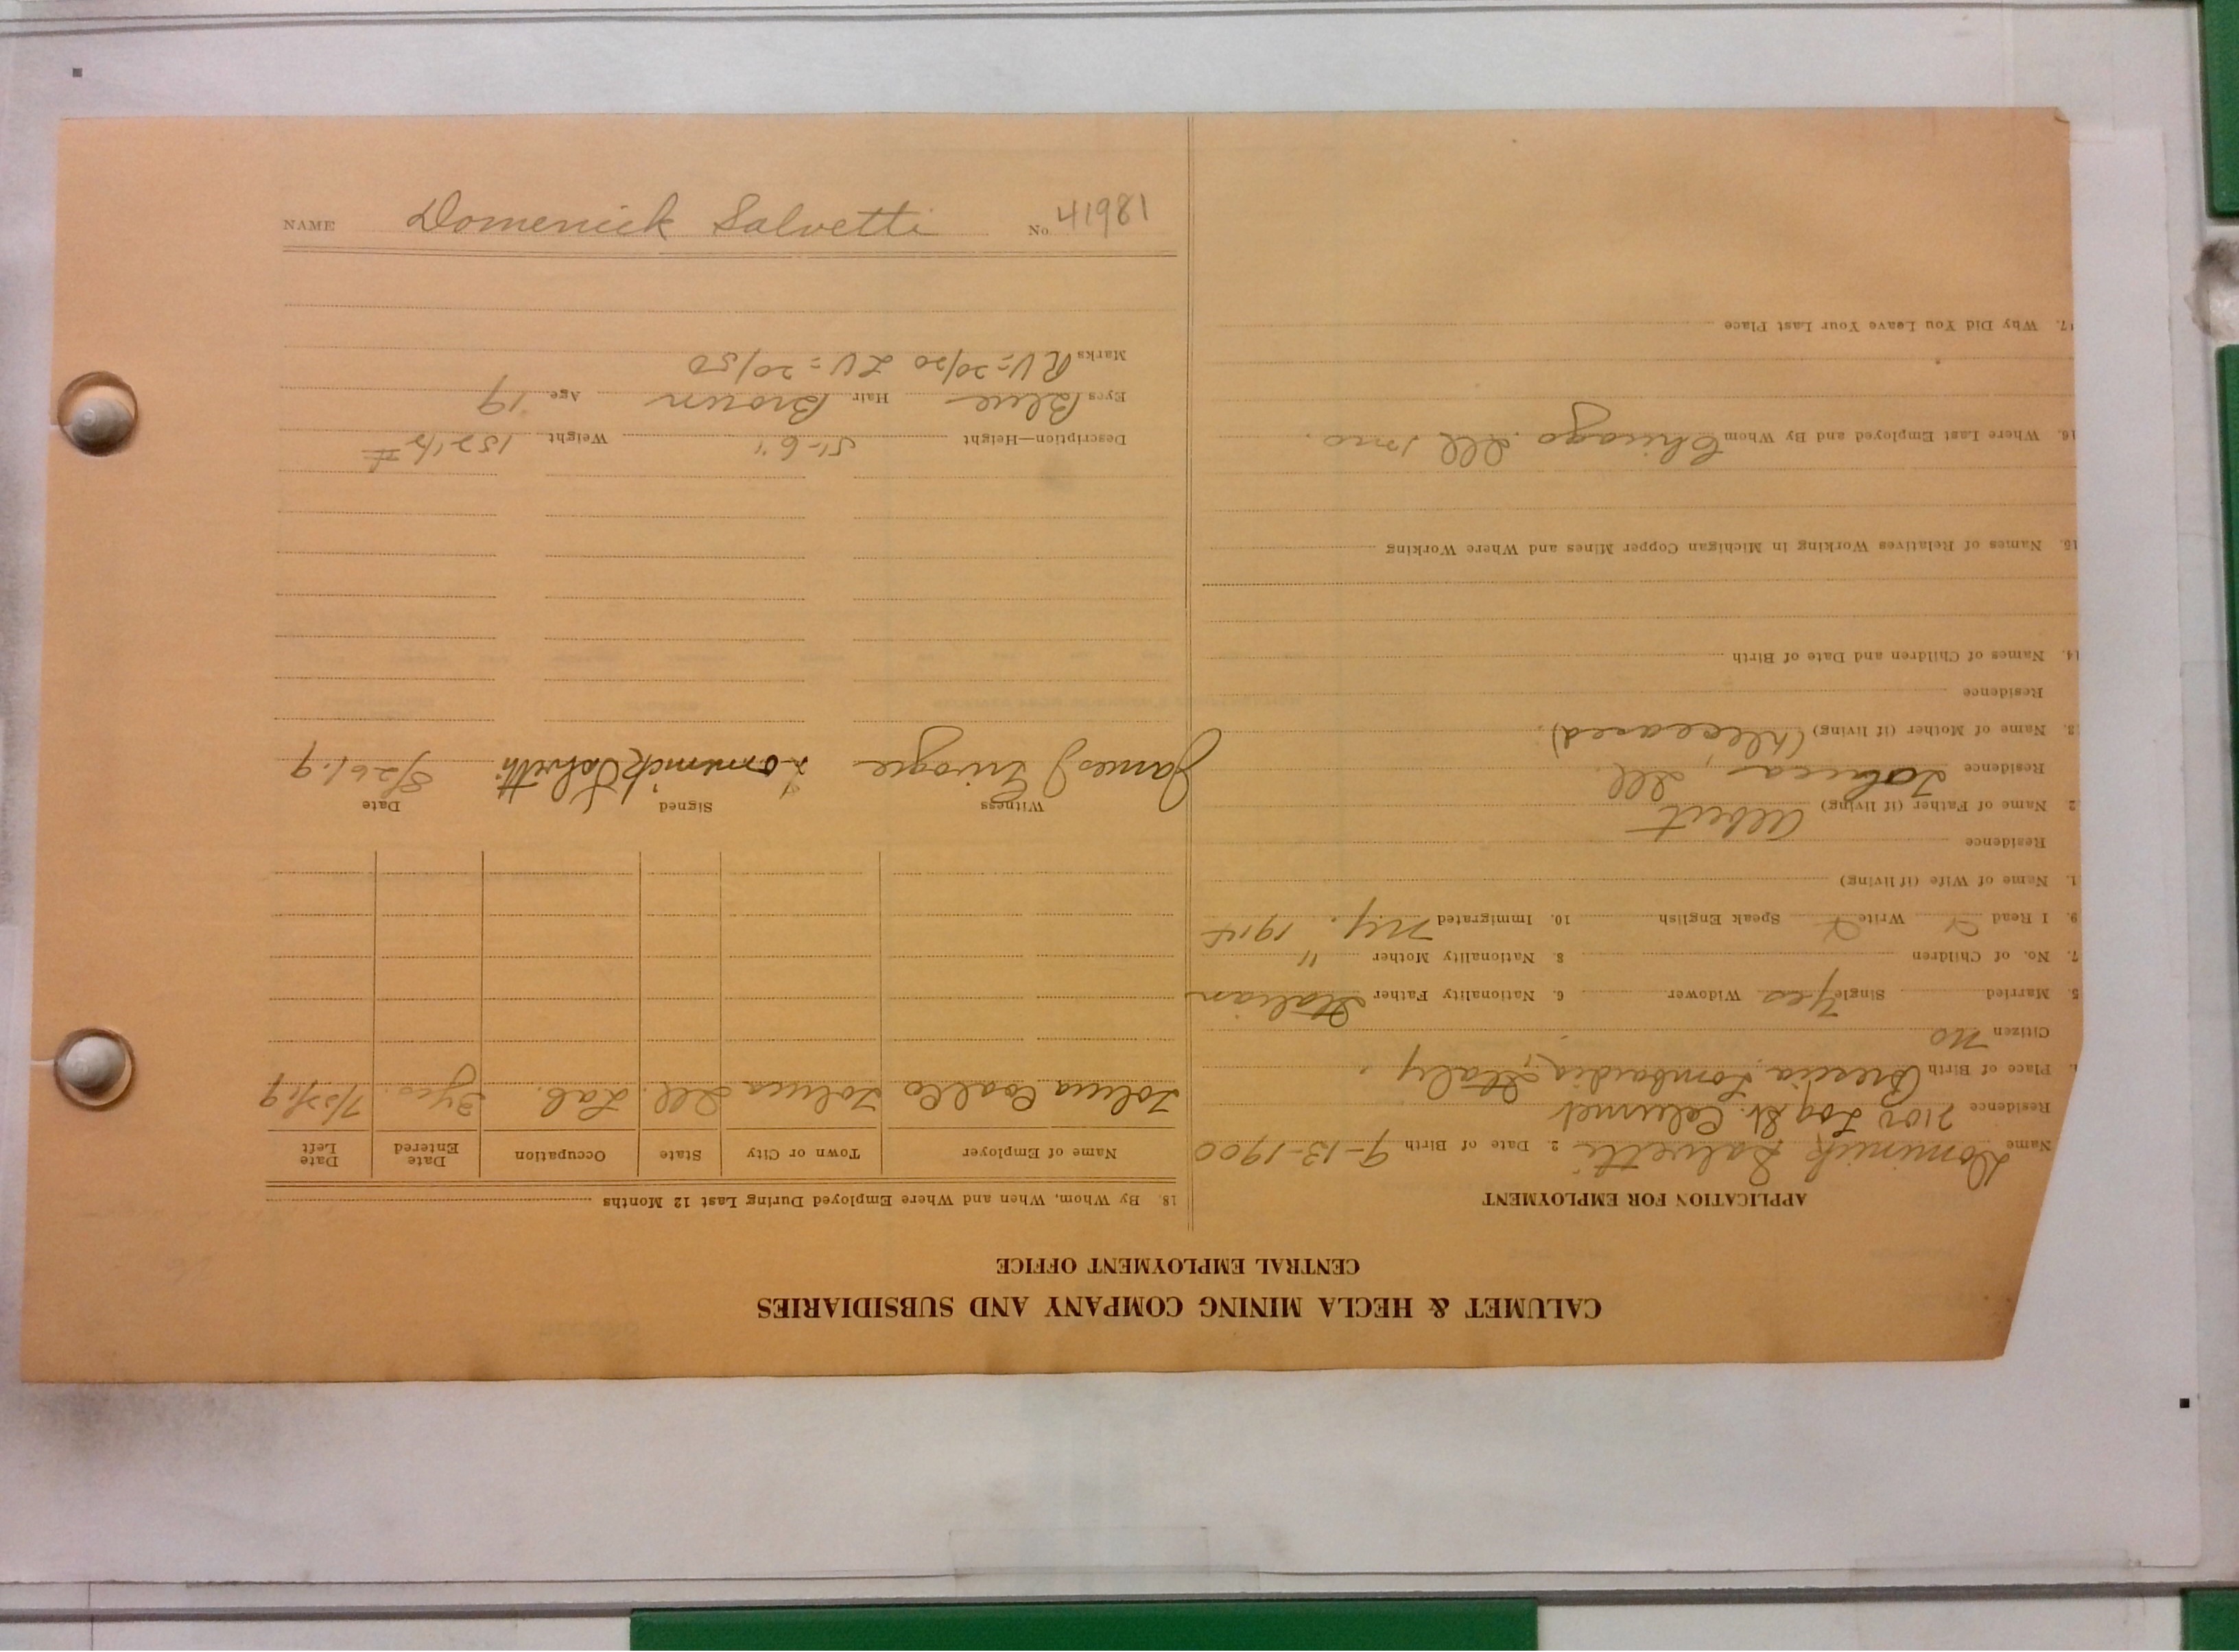 CALUMET & HECLA MINING COMPANY AND SUBSIDIARIES
CENTRAL EMPLOYMENT OFFICE
APPLICATION FOR EMPLOYMENT
Name Dominick Salvetti 2. Date of Birth 9-13-1900
Residence Log St. Calumet
Place of Birth Brescia Lombardia, Italy.
Citizen No
5. Married Single Yes Widower 6. Nationality Father Italian
7. No. of Children 8. Nationality Mother "
9. I Read Write Speak English 10. Immigrated N.Y.
1. Name of Wife (if living)
Residence
2 Name of Father (if living) Albert
Residence Toluca, Ill.
3. Name of Mother (if living) (Deceased).
Residence
14. Names of Children and Date of Birth
15. Names of Relatives Working in Michigan Copper Mines and Where Working
16. Where Last Employed and By Whom Chicago Ill 1 mo.
17. Why Did You Leave Your Last Place
18. By Whom, When and Where Employed During Last 12 Months
Name of Employer Town or City State Occupation Date Entered Date Left
Toluca Coal Co Toluca Ill. Lab. 3 yrs.
Witness Signed Date
James J Dominick Salvetti 8/26/19
Description—Height 5'-6" Weight 152 1/2 #
Eyes Blue Hair Brown Age 19
Marks RV=20/20 LV=20/50
NAME Domenick Salvetti No. 41981